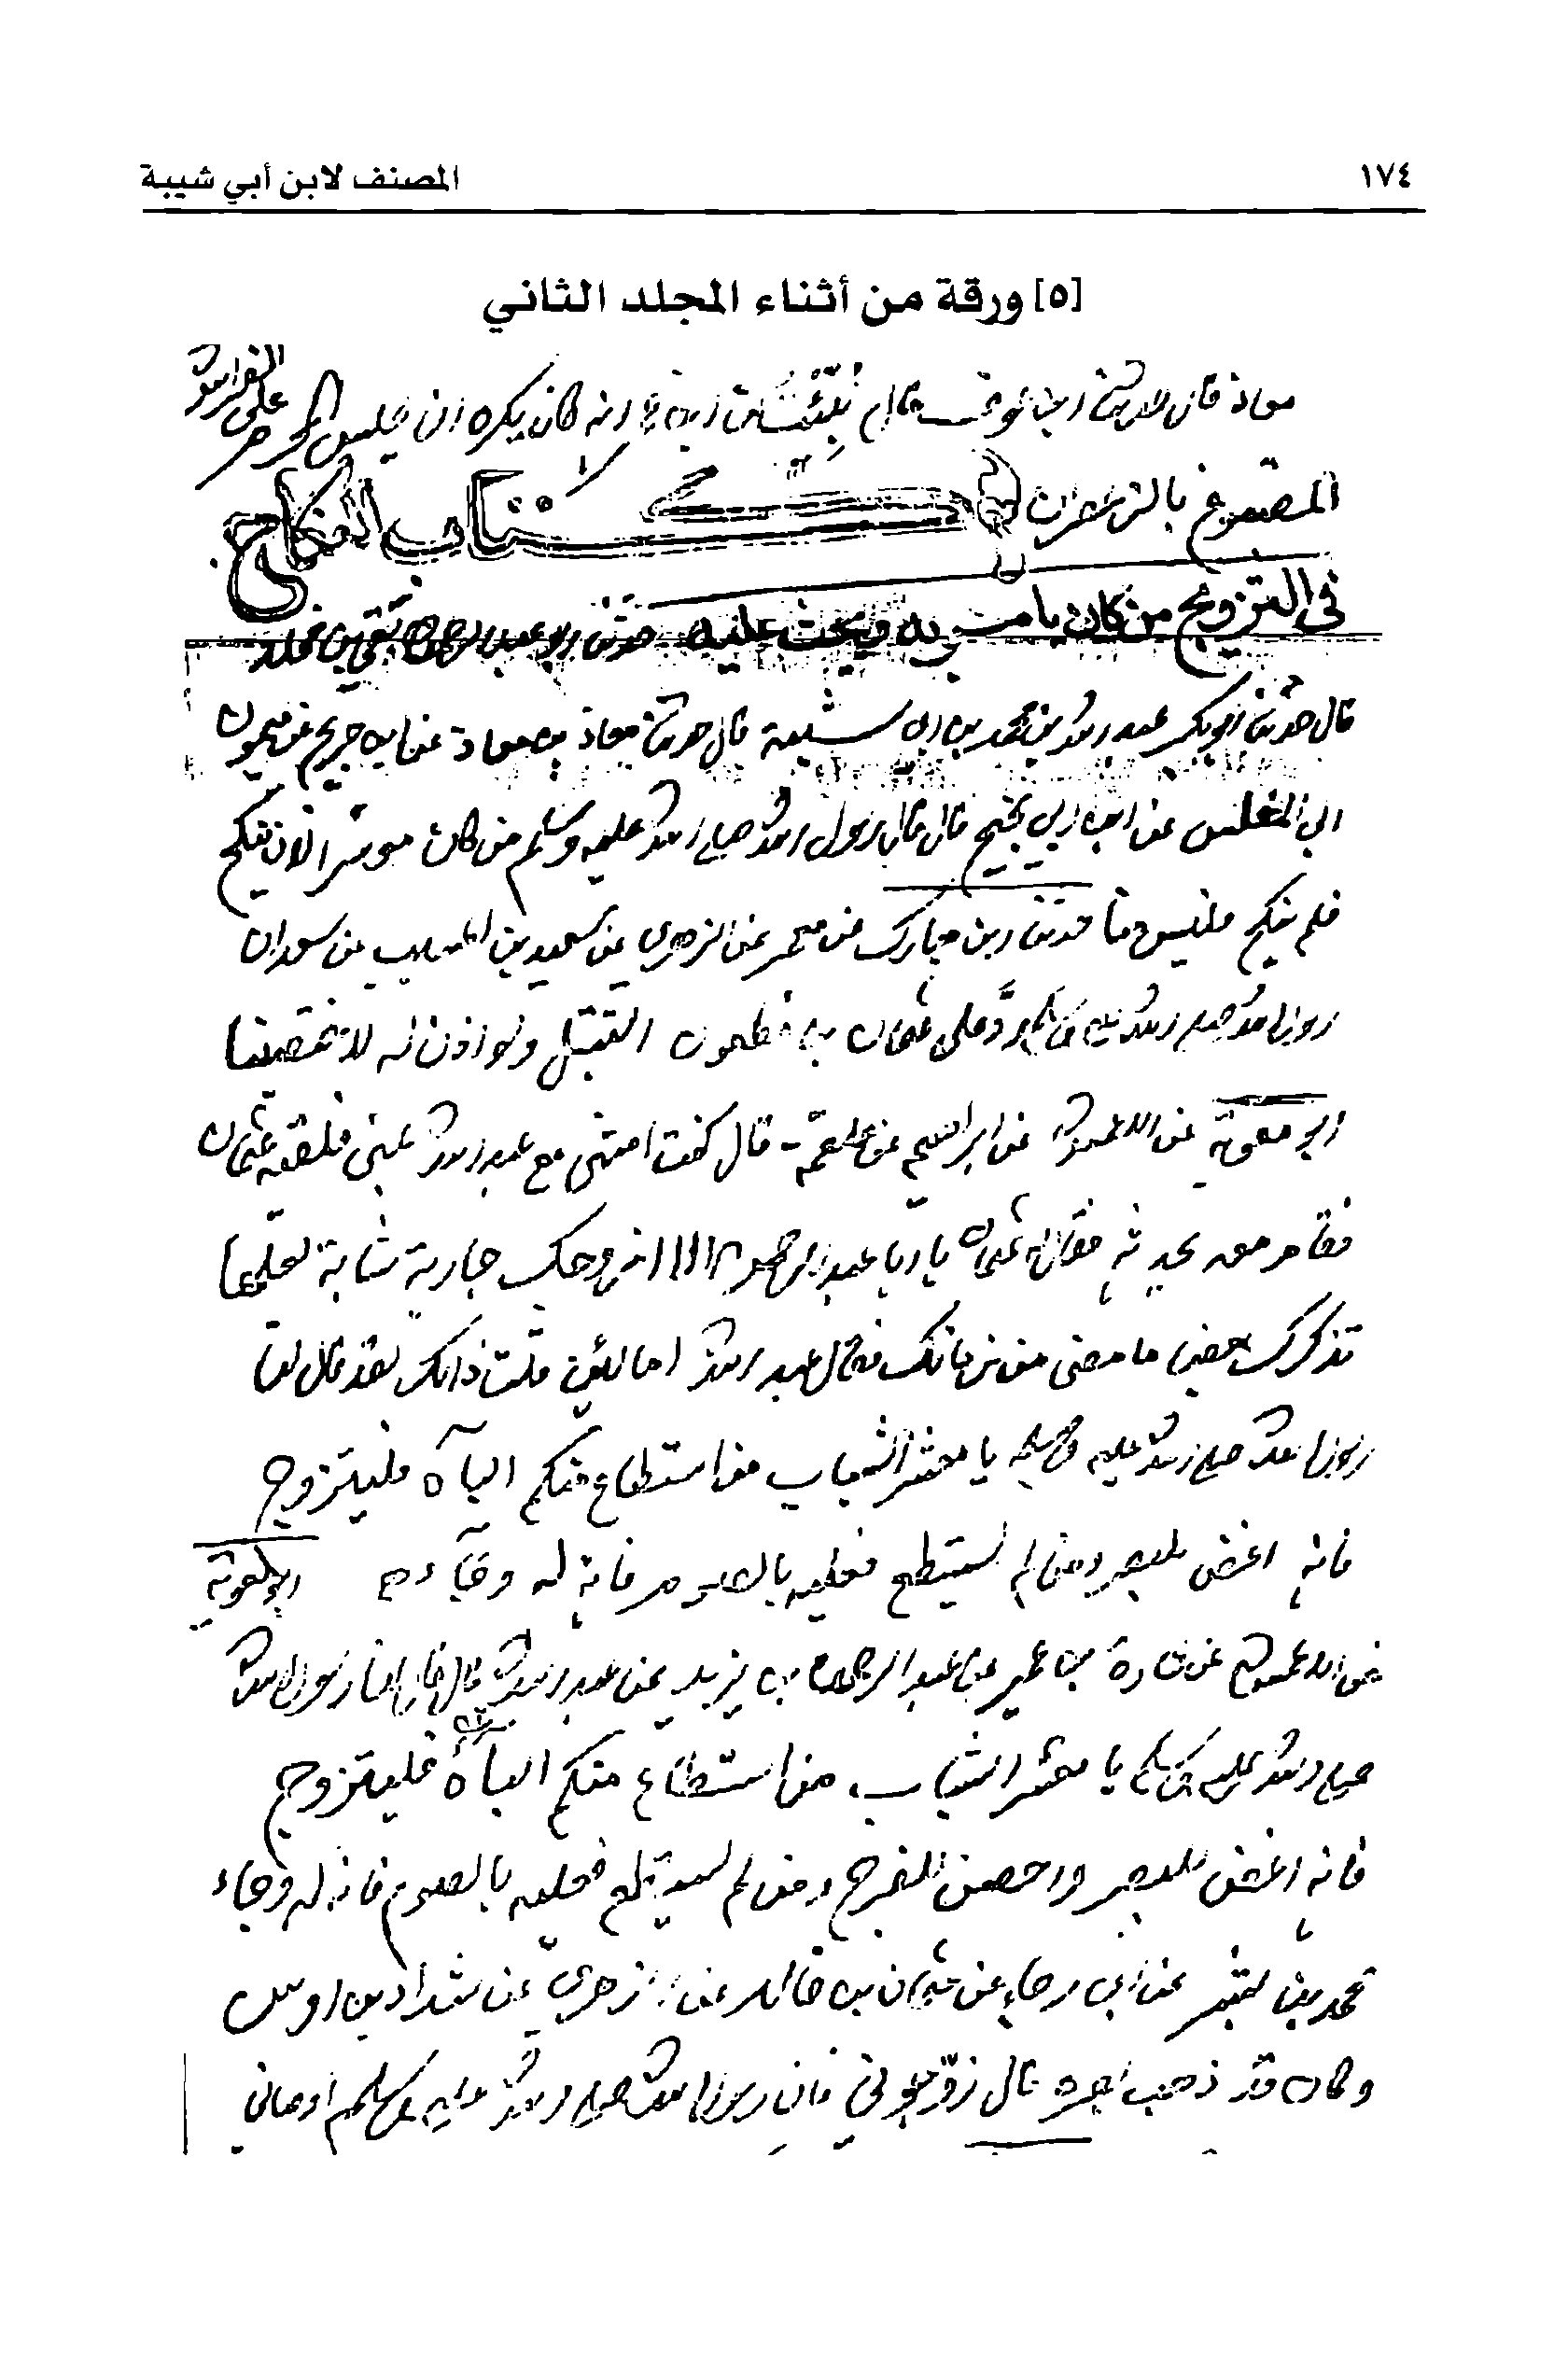 ١٧٤ المصنف لابن أبي شيبة
[٥] ورقة من أثناء المجلد الثاني
معاذ قال حدثنا ابن عون قال نبئت ان انه كان يكره ان يجلس المحرم على الفراش
المصبوغ بالزعفران كتاب النكاح
في التزويج من كان يامر به ويحث عليه حدثنا ابو عبد الرحمن بقي بن مخلد
قال حدثنا ابو بكر عبد الله بن محمد بن ابي شيبة قال حدثنا معاذ بن معاذ عن ابن جريج عن ميمون
ابي المغلس عن ابن ابي نجيح قال قال رسول الله صلى الله عليه وسلم من كان موسرا لان ينكح
فلم ينكح فليس منا حدثنا ابن مبارك عن معمر عن الزهري عن سعيد بن المسيب عن سعد ان
رسول الله صلى الله عليه وسلم رد على عثمان بن مظعون التبتل ولو اذن له لاختصينا
ابو معوية عن الاعمش عن ابراهيم عن علقمة قال كنت امشي مع عبد الله بمنى فلقيه عثمان
فقام معه يحدثه فقال له عثمان يا ابا عبد الرحمن الا ازوجك جارية شابة لعلها
تذكرك بعض ما مضى من زمانك فقال عبد الله اما لئن قلت ذاك لقد قال لنا
رسول الله صلى الله عليه وسلم يا معشر الشباب من استطاع منكم الباه فليتزوج
فانه اغض للبصر ومن لم يستطع فعليه بالصوم فانه له وجاء ابو معوية
عن الاعمش عن عمارة بن عمير عن عبد الرحمن بن يزيد عن عبد الله قال قال لنا رسول الله
صلى الله عليه وسلم يا معشر الشباب من استطاع منكم الباه فليتزوج
فانه اغض للبصر واحصن للفرج ومن لم يستطع فعليه بالصوم فانه له وجاء
محمد بن بشر عن ابي رجاء عن عثمان بن خالد عن الزهري عن شداد بن اوس
وكان قد ذهب بصره قال زوجوني فان رسول الله صلى الله عليه وسلم اوصاني